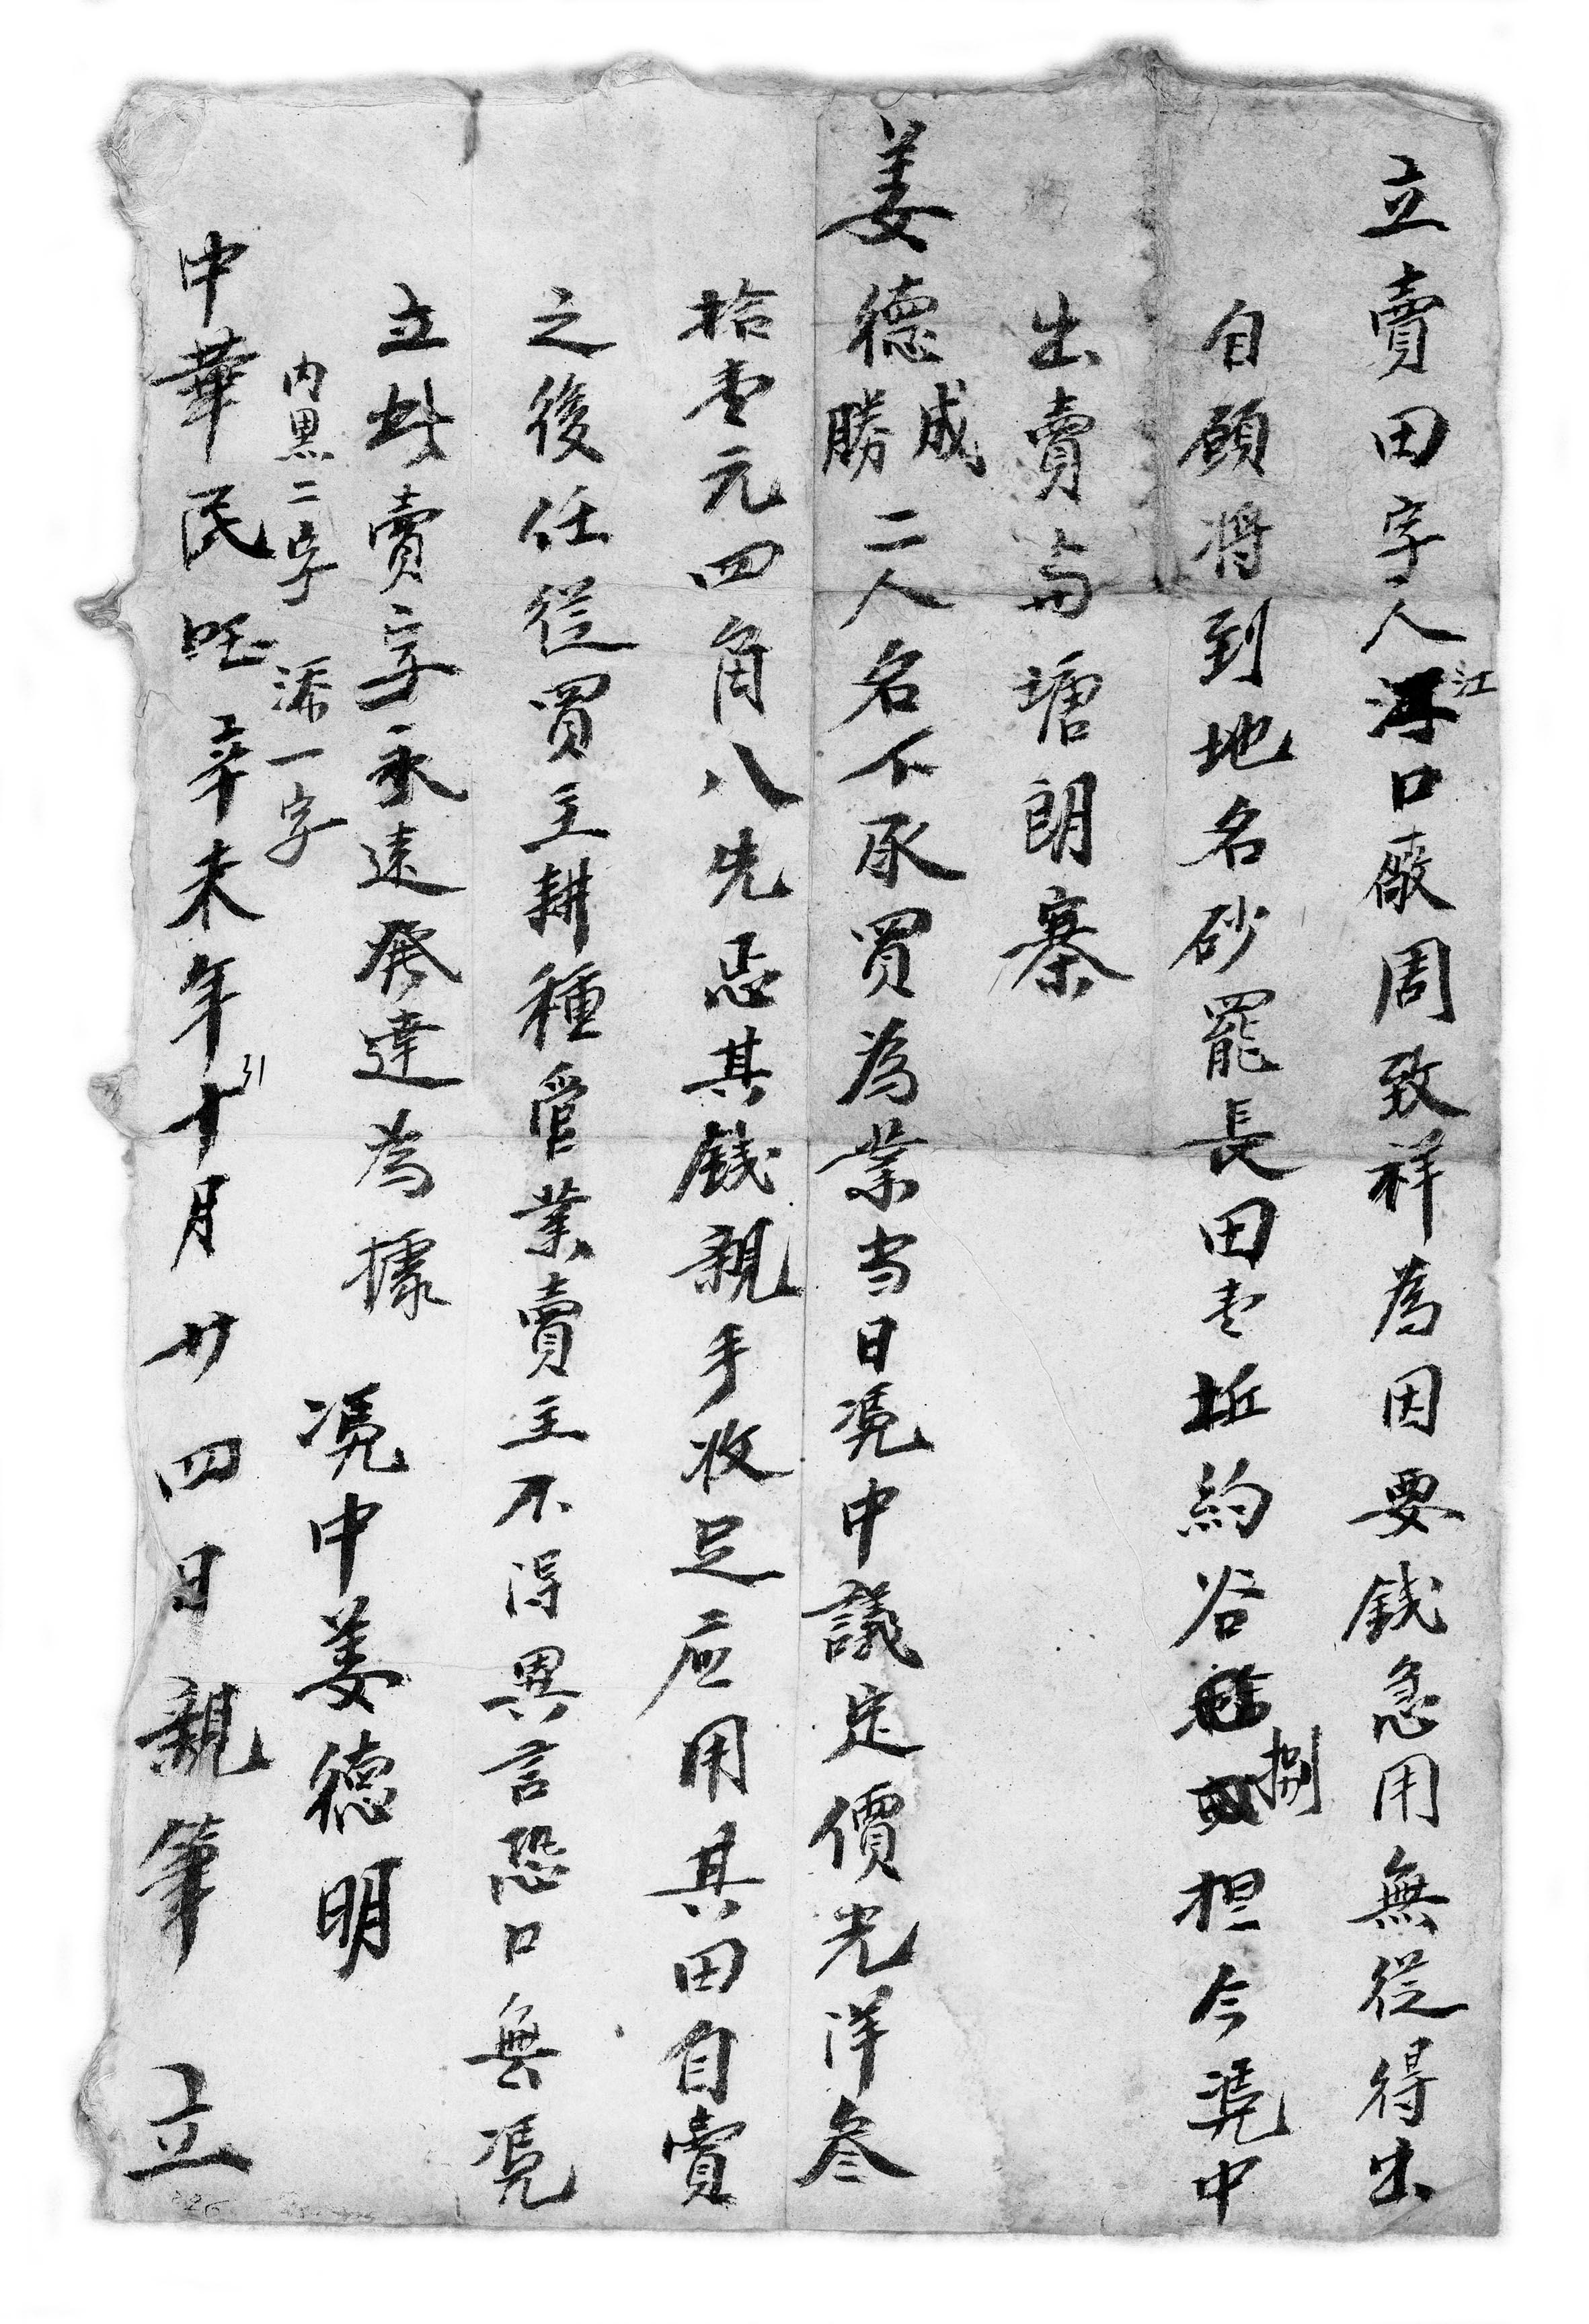 立賣田字人江口廠周致祥為因要錢急用無從得出
自願將到地名砂罷長田壹坵約谷捌担今凴中
出賣與塘朗寨
姜德成勝二人名下承買為業当日凴中議定價光洋叁
拾壹元四角八先忈其錢親手收足应用其田自賣
之後任從買主耕種管業賣主不淂異言恐口無凴
立此賣字永遠発達為據
凴中姜德明
内黑二字 添一字
中華民 辛未年十月廿四日親筆 立